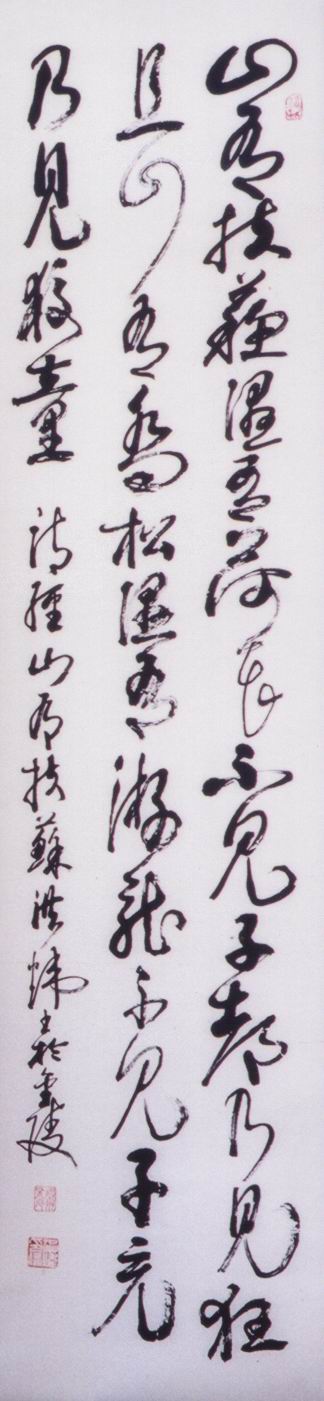 山有扶蘇隰有荷華不見子都乃見狂
且山有喬松隰有游龍不見子充
乃見狡童 詩經山有扶蘇洪煒書於金陵